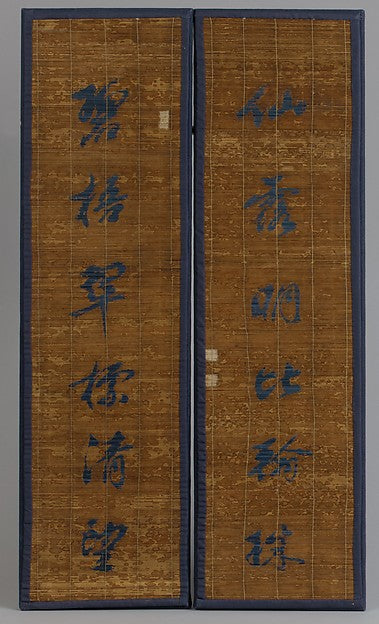 仙露明比翰珠
碧梧翠標清望